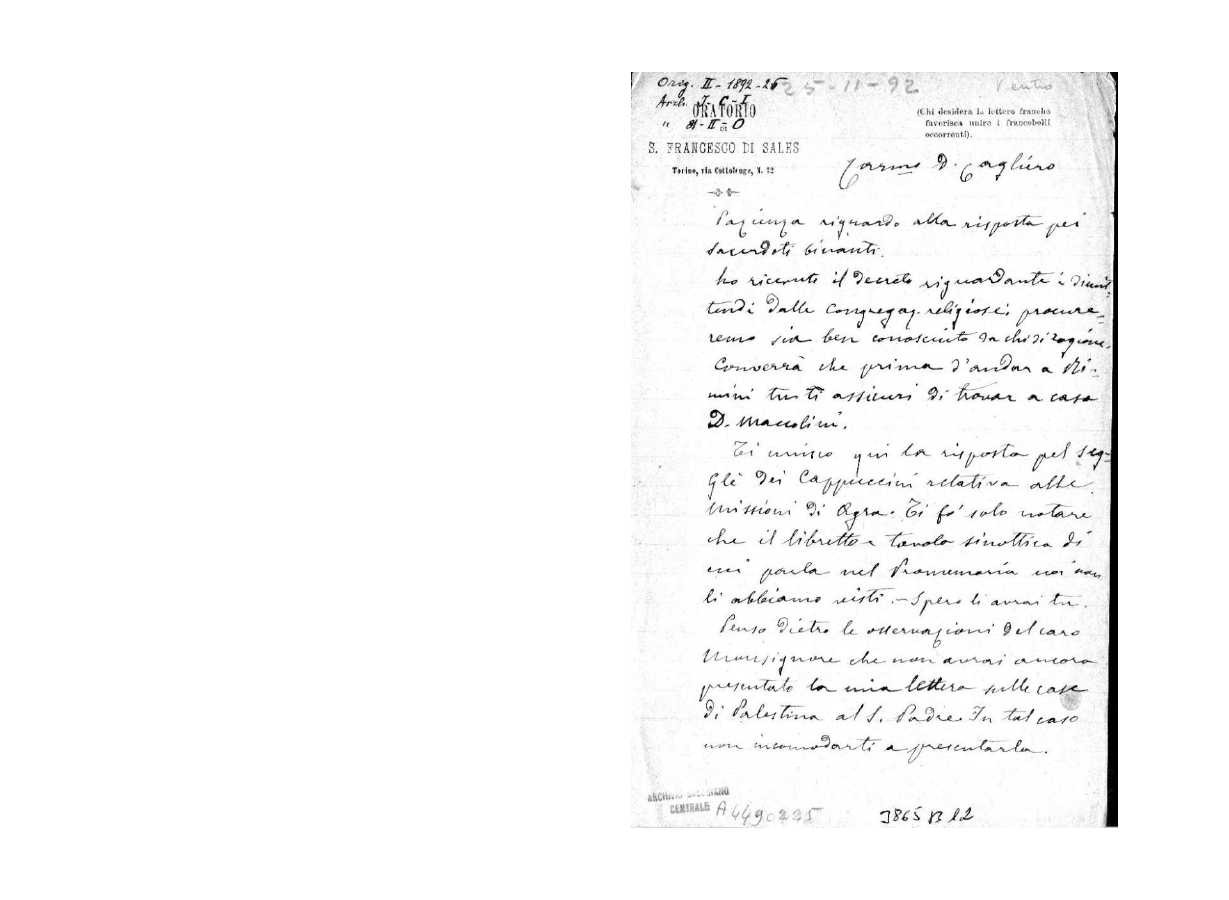 Orig. II - 1892 - 25
25-11-92
Arch. I-C-I
" 31-II-O
ORATORIO
DI
S. FRANCESCO DI SALES
Torino, via Cottolengo, N. 32
(Chi desidera le lettere franche
favorisca unire i francobolli
occorrenti).
Carmo D. Cagliero
Pazienza riguardo alla risposta pei
sacerdoti binanti.
ho ricevuto il decreto riguardante i dimit-
tendi dalle Congregaz. religiose; procure-
remo sia ben conosciuto da chi di ragione.
Converrà che prima d'andar a Ri-
mini tu ti assicuri di trovar a casa
D. Maccolini.
Ti unisco qui la risposta pel Seg-
Gle dei Cappuccini relativa alle
Missioni di Agra. Ti fo' solo notare
che il libretto e tavola sinottica di
cui parla nel Promemoria noi non
li abbiamo visti. - Spero li avrai tu.
Penso dietro le osservazioni del caro
Monsignore che non avrai ancora
presentato la mia lettera sulle case
di Palestina al S. Padre. In tal caso
non incomodarti a presentarla.
ARCHIVIO SALESIANO
CENTRALE
A4490225
3865 B 12